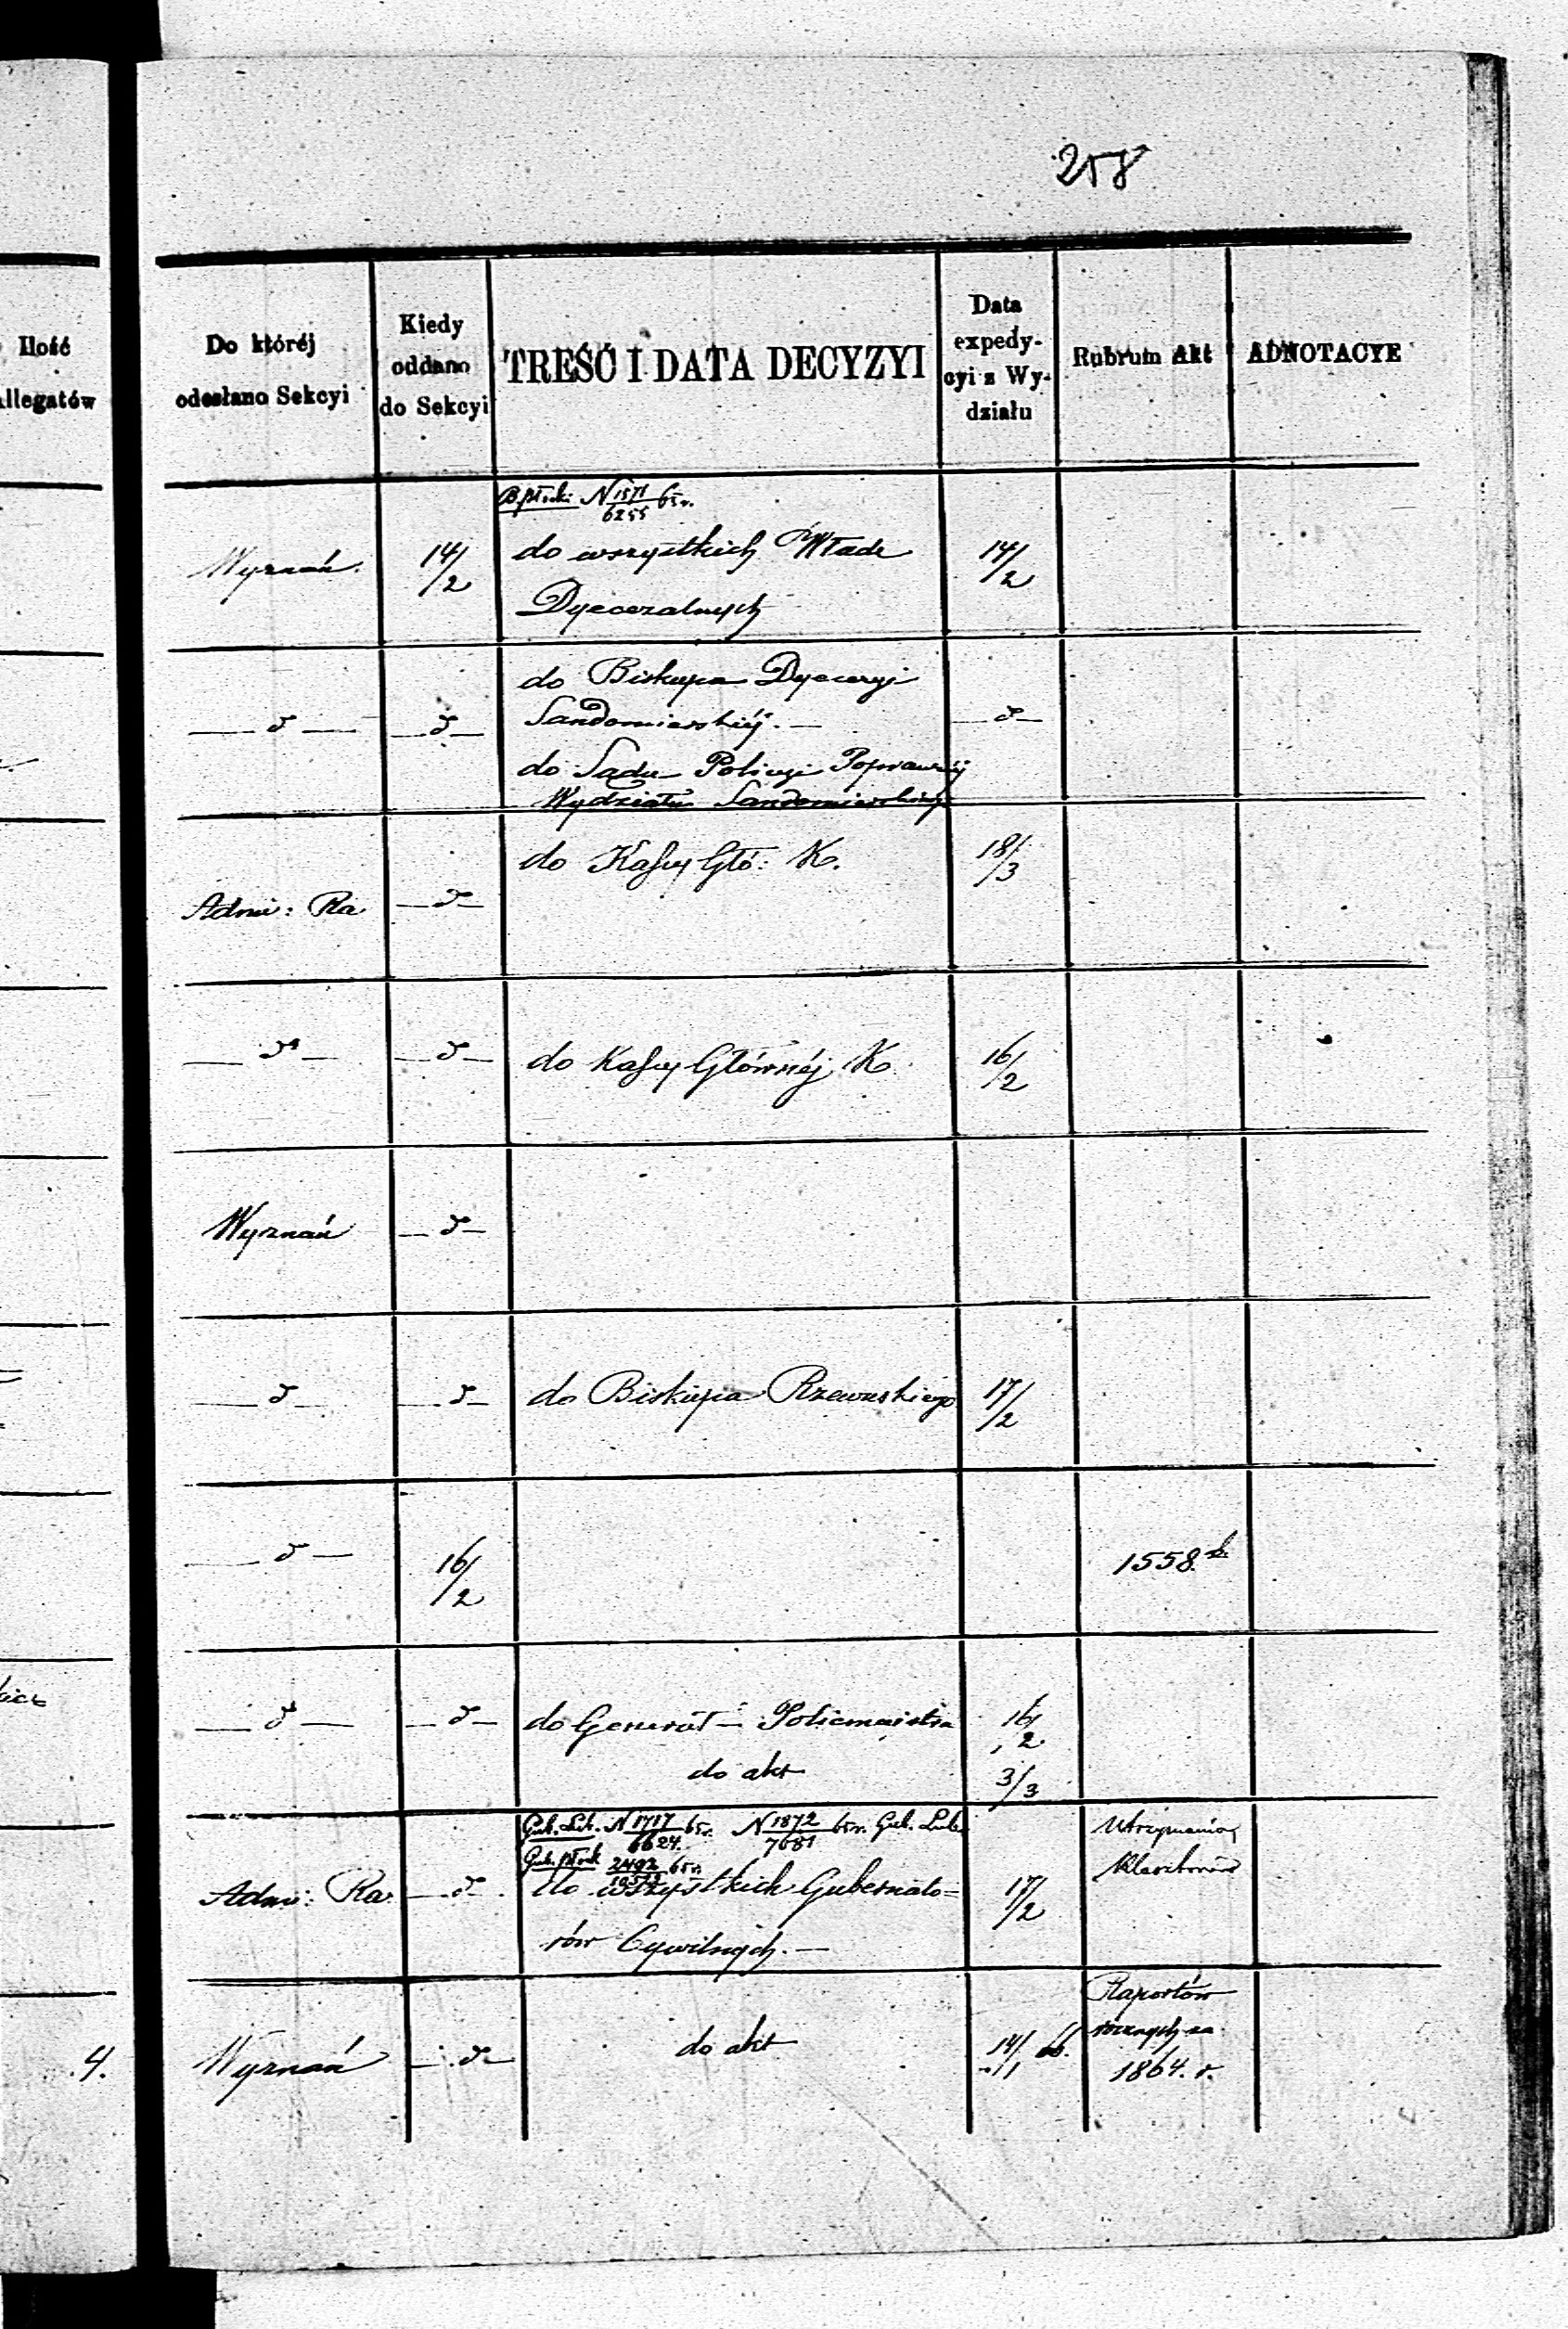 258
Ilość
Allegatów
Do któréj
odesłano Sekcyi
Kiedy
oddano
do Sekcyi
TREŚĆ I DATA DECYZYI
Data
expedy-
cyi z Wy-
działu
Rubrum Akt
ADNOTACYE
B. płocki N 1571/6255 65 r.
Wyznań
14/2
do wszystkich Władz
14/2
Dyecezalnych
do Biskupa Dyecezyi
— d —
— d —
Sandomierskiéj. —
— d —
do Sądu Policyi Poprawczéj
Wydziału Sandomierskiego
Admi: Ra
— d —
do Kassy Głó: K.
18/3
— d —
— d —
do Kassy Głównéj K
16/2
Wyznań
— d —
— d —
— d —
do Biskupa Rzewuskiego
17/2
— d —
16/2
1558.
— d —
— d —
do Generał - Policmajstra
16/2
do akt
3/3
Gub. Lub. N 1717/6624 65 r. N 1872/7681 65 r. Gub. Lub.
Gub. płock 2492 65 r.
Admi: Ra.
— d —
do wszystkich Gubernato=
rów Cywilnych. —
17/2
Utrzymania
Klasztorów
4.
Wyznań
— d —
do akt
14/1 66.
Raportów
rocznych za
1864. r.